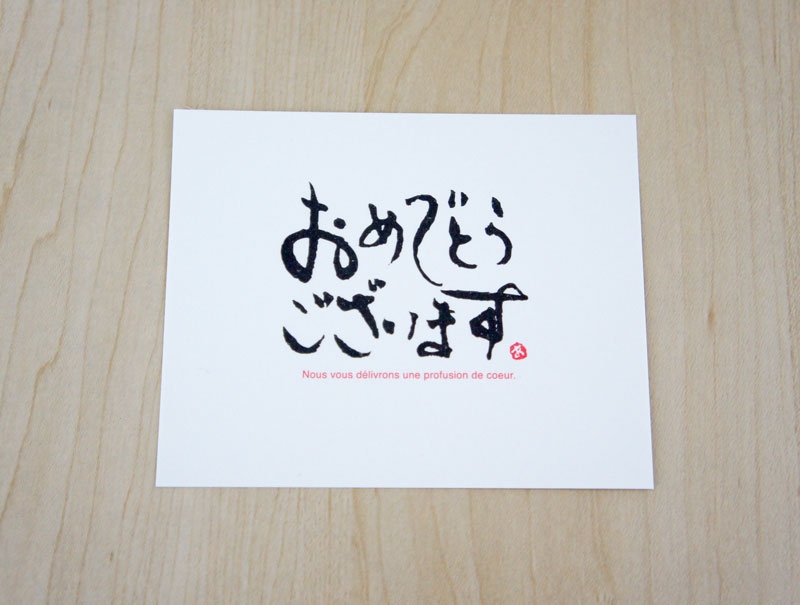 おめでとう
ございます
あ
Nous vous délivrons une profusion de coeur.